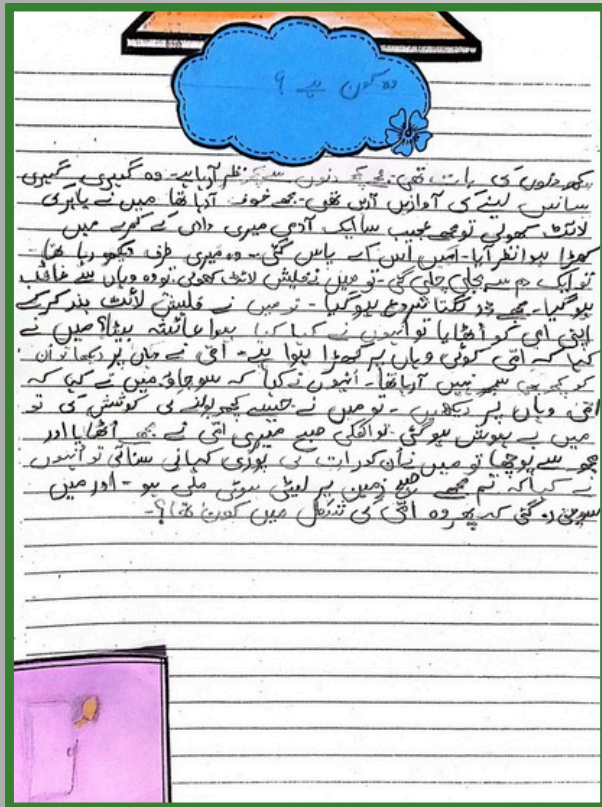 وہ کون ہے ؟
کچھ دنوں کی رات تھی۔ مجھے کچھ دنوں سے کچھ نظر آرہا ہے۔ وہ گہیری گہیری
سانس لینے کی آوازیں آرہی تھی۔ مجھے خوف آرہا تھا میں نے باہر کی
لائٹ کھولی تو مجھے عجیب سا ایک آدمی میری دادی کے کمرے میں
کھڑا ہوا نظر آیا۔ میں اس کے پاس گئی۔ وہ میری طرف دیکھ رہا تھا۔
تو ایک دم سے بجلی چلی گئی۔ تو میں نے فلیش لائٹ کھولی تو وہ وہاں سے غائب
ہوگیا۔ مجھے ڈر لگنا شروع ہوگیا۔ تو میں نے فلیش لائٹ بند کرکے
اپنی امی کو اُٹھایا تو انہوں نے کہا کیا ہوا عائشہ بیٹا؟ میں نے
کہا کہ امّی کوئی وہاں پر کھڑا ہوا ہے۔ امّی نے وہاں پر دیکھا تو اُن
کو کچھ بھی نہیں آرہا تھا۔ اُنہوں نے کہا کہ سوجاؤ۔ میں نے کہا کہ
امّی وہاں پر دیکھیں۔ تو میں نے جیسے کچھ بولنے کی کوشش کی تو
میں بے ہوش ہوگئی۔ تو اگلی صبح میری امّی نے مجھے اُٹھایا اور
مجھ سے پوچھا تو میں نے اُن کو رات کی پوری کہانی سنائی تو اُنہوں
نے کہا کہ تم مجھے صبح زمین پر لیٹی ہوئی ملی ہو۔ اور میں
سوچتی رہ گئی کہ پھر وہ امّی کی شکل میں کون تھا؟۔